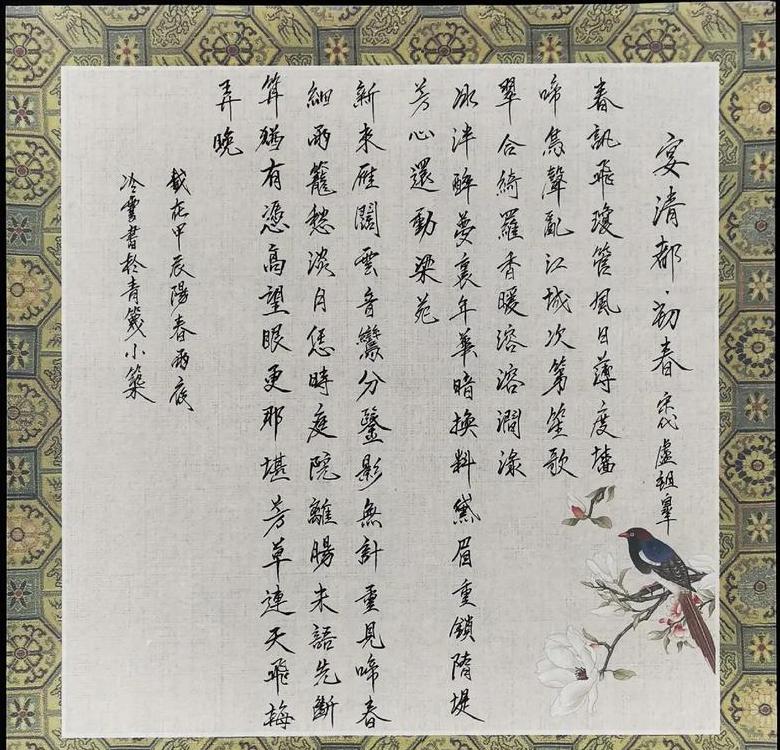 宴清都·初春 宋代 盧祖皋
春訊飛瓊管風日薄度墻
啼鳥聲亂江城次第笙歌
翠合綺羅香暖溶溶澗渌
冰泮醉夢裏年華暗換料黛眉重鎖隋堤
芳心還動梁苑
新來雁闊雲音鸞分鑒影無計重見啼春
細雨籠愁淡月恁時庭院離腸未語先斷
算猶有憑高望眼更那堪芳草連天飛梅
弄晚
在甲辰陽春雨夜
冷雲書於青箋小築